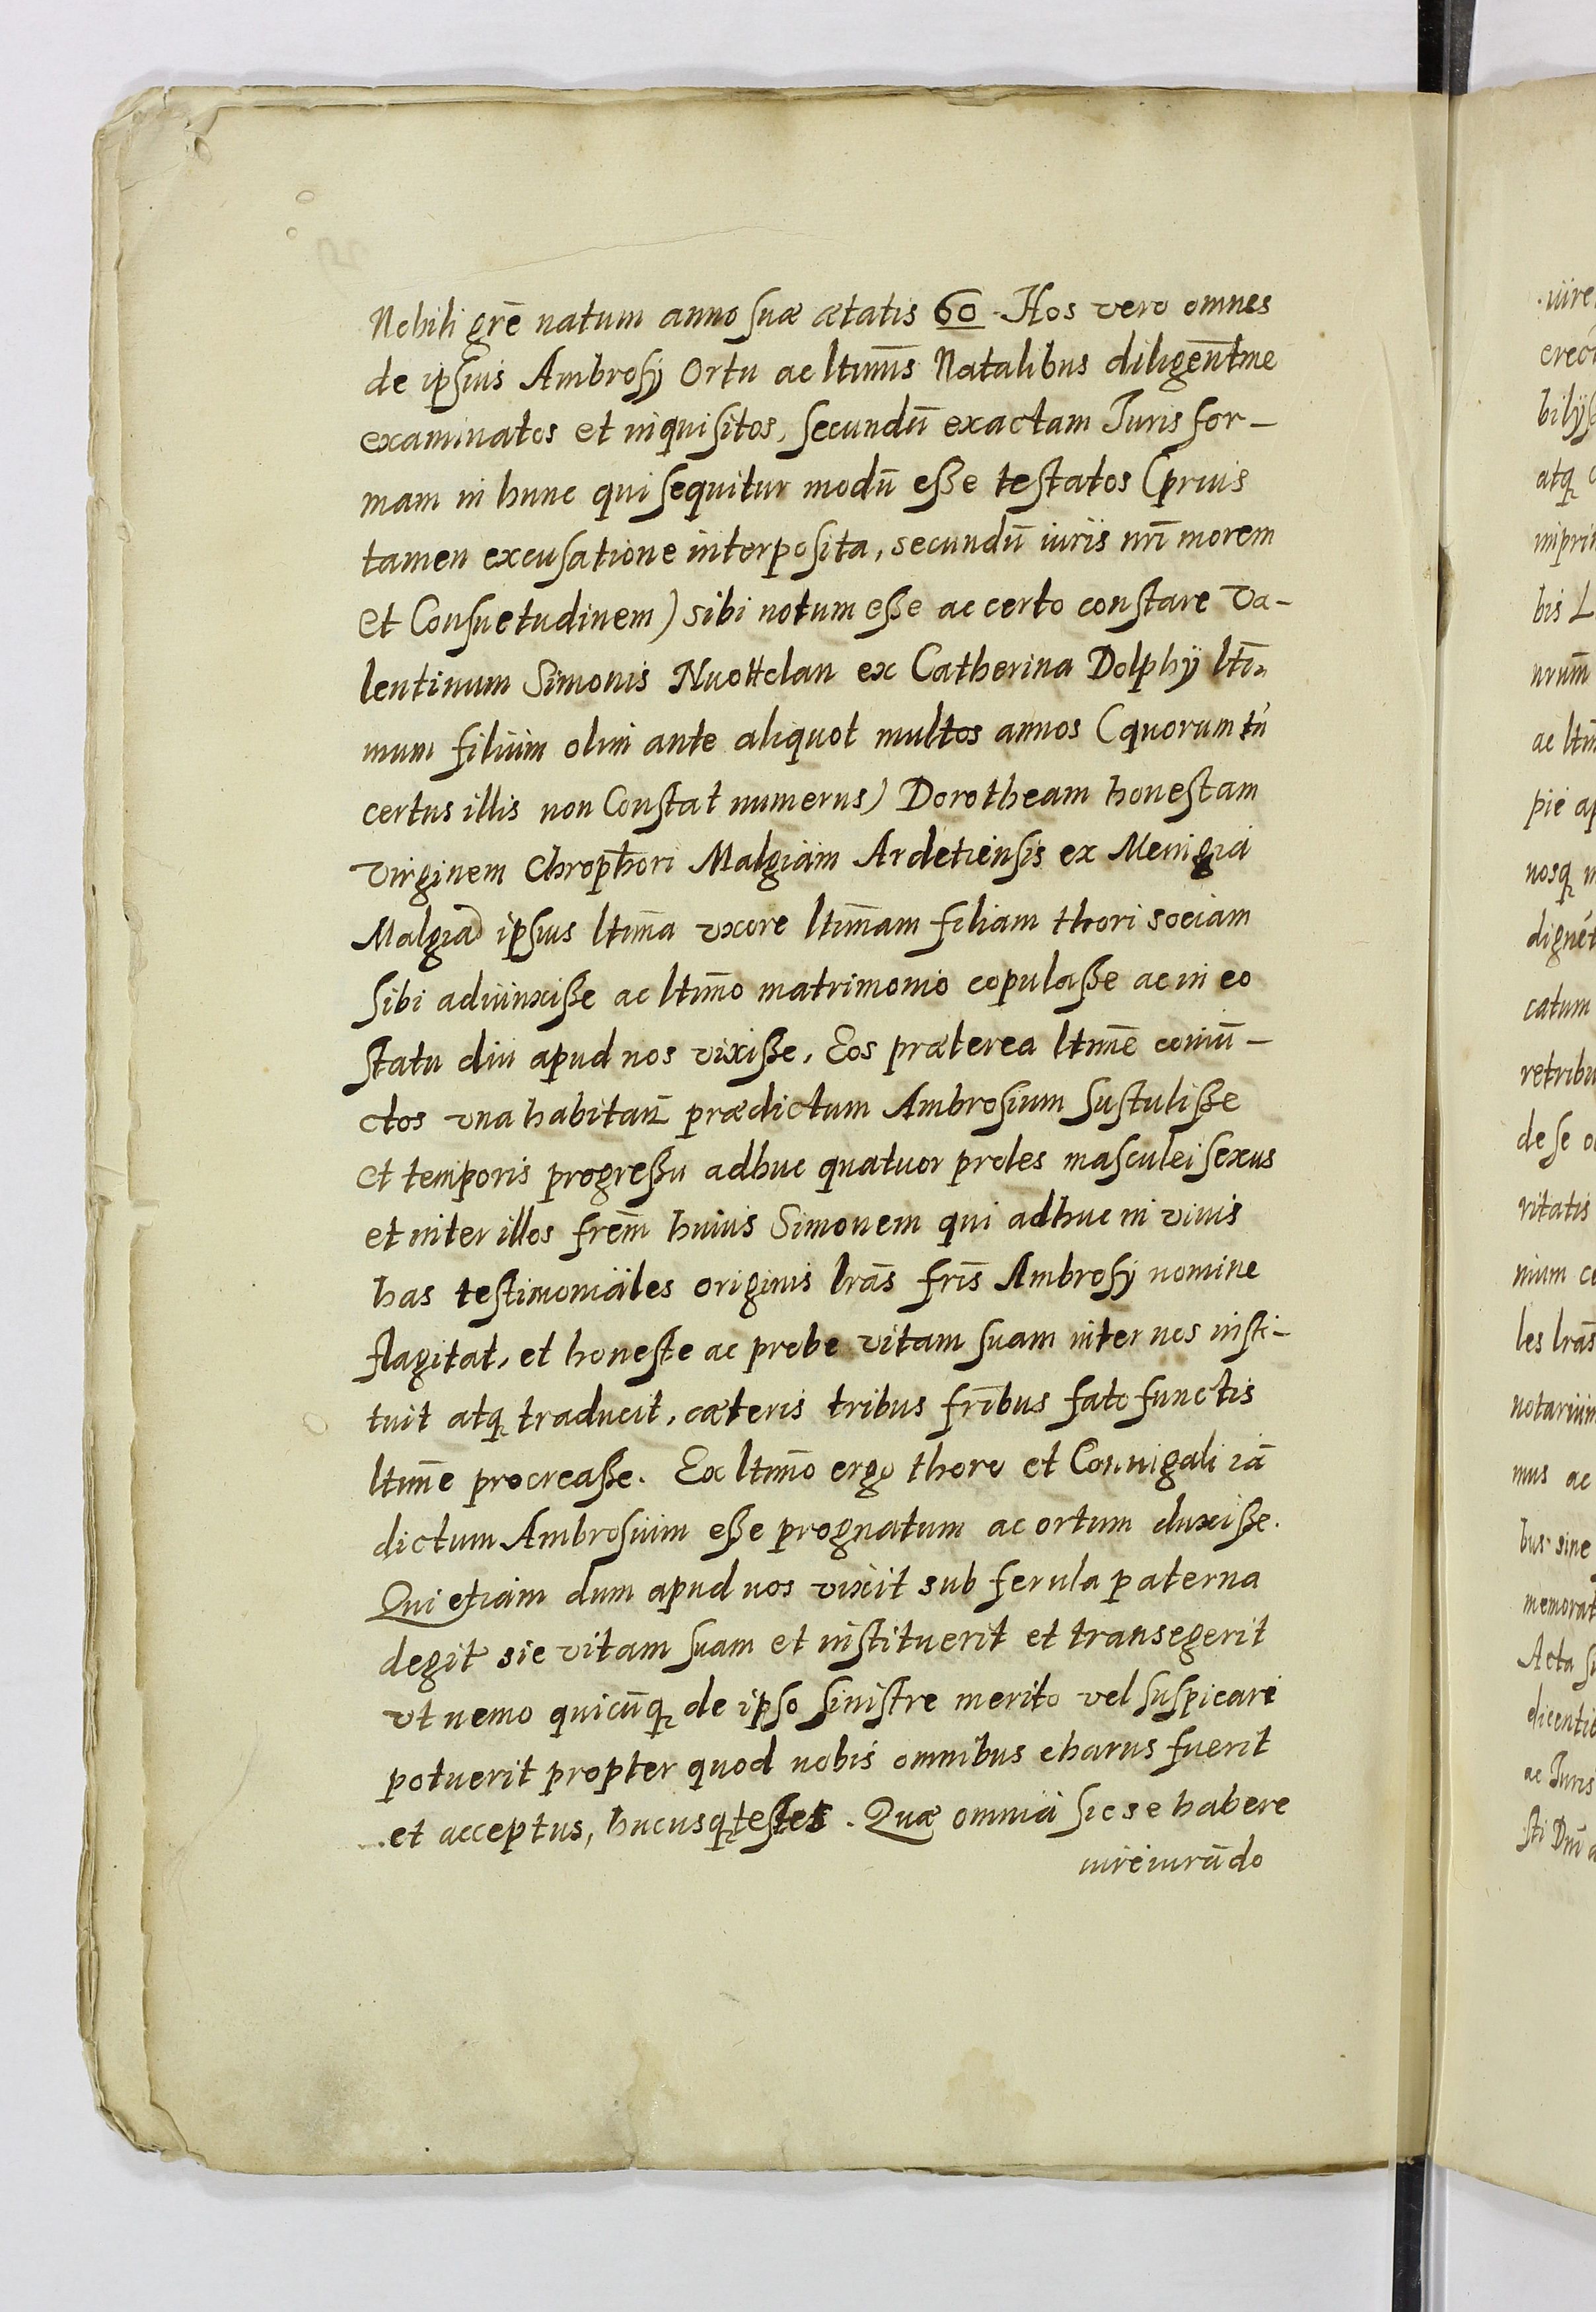 Nobili gr̄e natum anno suæ ætatis 60. Hos vero omnes
de ipsius Ambrosÿ Ortu ac ltim̄is Natalibus diligent̄me
examinatos et inquisitos, secundū exactam Juris for-
mam in hunc qui sequitur modū esse testatos (prius
tamen excusatione interposita, secundū iuris nr̄i morem
et Consuetudinem) sibi notum esse ac certo constare Va-
lentinum Simonis Nuottclan ex Catherina Dolphÿ ltī-
mum filium olim ante aliquot multos annos (quorum tn̄
certus illis non Constat numerus) Dorotheam honestam
Virginem Chrop̄hori Malgiam Ardetiensis ex Menigia
Malgia ipsius ltim̄a uxore ltim̄am filiam thori sociam
sibi adiunxisse ac ltim̄o matrimonio copulasse ac in eo
statu diu apud nos vixisse. Eos præterea ltim̄e coniū-
ctos una habitan̄ prædictum Ambrosium sustulisse
et temporis progressu adhuc quatuor proles masculei sexus
et inter illos frēm huius Simonem qui adhuc in vivis
has testimoniales originis lrās fr̄is Ambrosÿ nomine
flagitat, et honeste ac probe vitam suam inter nos insti-
tuit atq traducit, cæteris tribus fr̄ibus fato functis
ltim̄e procreasse. Ex ltim̄o ergo thoro et Coniugali iā
dictum Ambrosium esse prognatum ac ortum duxisse.
Qui etiam dum apud nos vixit sub ferula paterna
degit sic vitam suam et instituerit et transegerit
vt nemo quicūq de ipso sinistre merito vel suspicari
potuerit propter quod nobis omnibus charus fuerit
et acceptus, hucusq testes. Quæ omnia sic se habere
iureiurādo